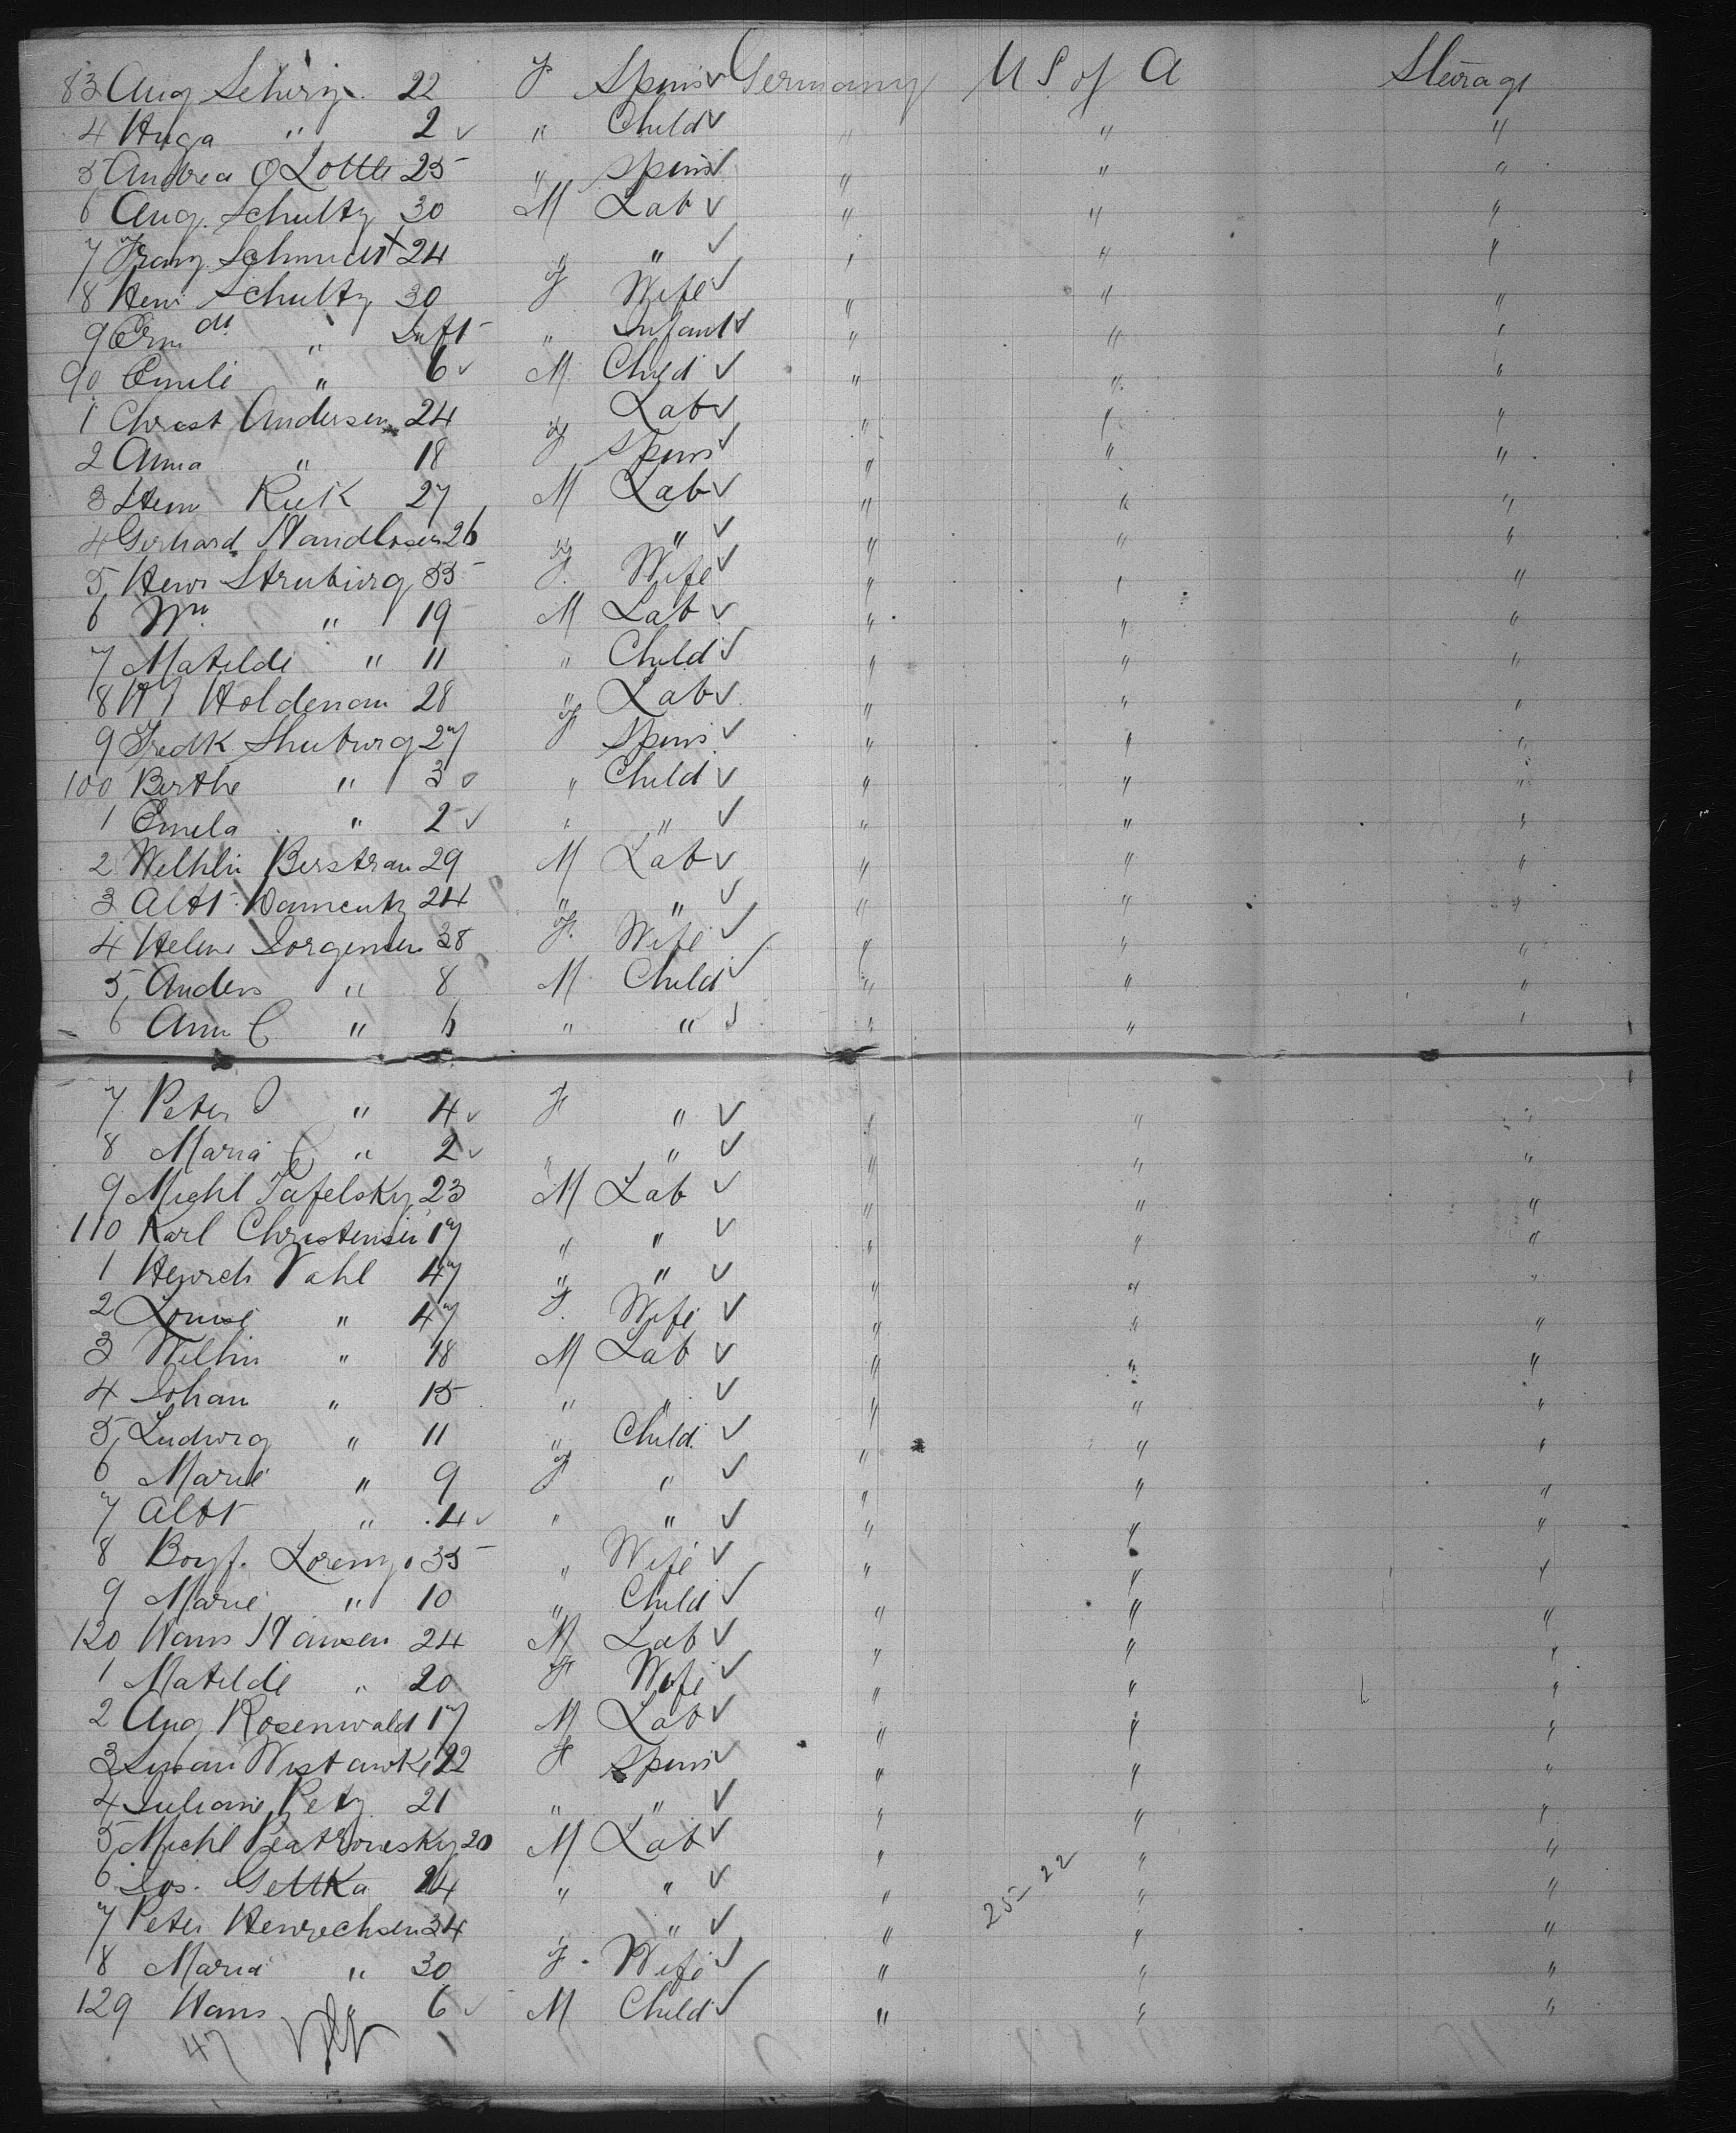 83 Aug 22 F Spins Germany U S of A Steerage
4 Huga " 2 " Child " " "
5 Andrea O Lotte 25 " Spins " " "
6 Aug. Schultz 30 M Lab " " "
7 Franz Schmidt 24 " " " " "
8 Henr Schultz 30 F Wife " " "
9 " Inft " Infant " " "
90 Emili " 6 M Child " " "
1 Christ Andersen 24 Lab " " "
2 Anna " 18 F Spins " " "
3 Rick 27 M Lab " " "
4 Gerhard 26 " " " " "
5 Henr 35 F. Wife " " "
6 Wm " 19 M Lab " " "
7 Matilde " 11 " Child " " "
8 Holdenau 28 " Lab " " "
9 Fredk 27 F Spins " " "
100 Berthe " 3 " Child " " "
1 Emela " 2 " " " " "
2 Welhlm 29 M Lab " " "
3 Albt 24 " " " " "
4 Helene Jorgensen 38 F. Wife " " "
5 Anders " 8 M Child " " "
6 Ann C " 6 " " " "
7 Peter " 4 F " " " "
8 Maria C " 2 " " " " "
9 Michl Tafelsky 23 M Lab " " "
110 Karl Christensen 17 " " " " "
1 Henrch Vahl 47 " " " " "
2 Louise " 47 F. Wife " " "
3 Wilhm " 18 M Lab " " "
4 Johan " 15 " " " " "
5 Ludwig " 11 " Child " " "
6 Marie " 9 F " " " "
7 Albt " 4 " " " " "
8 35 " Wife " " "
9 Marie " 10 " Child " " "
120 Hans Hansen 24 M Lab " " "
1 Matilde " 20 F Wife " " "
2 Aug Rosenwald 17 M Lab " " "
3 22 F Spins " " "
4 Petz 21 " " " " "
5 Michl 20 M Lab " " "
6 Jos. Gettka 24 " " " " "
7 Peter Henrechsen 34 " " " " "
8 Maria " 30 F Wife " " "
129 Hans 6 M Child " " "
47